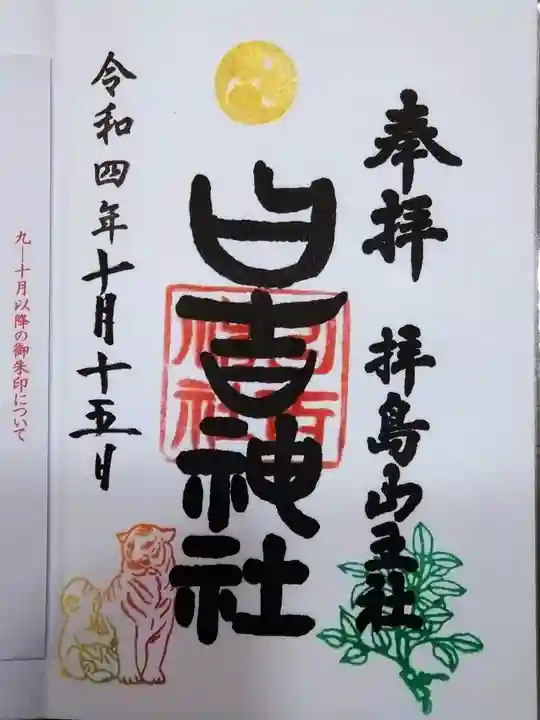 奉拝　拝島山王社
日吉神社
日吉神社
令和四年十月十五日
九―十月以降の御朱印について